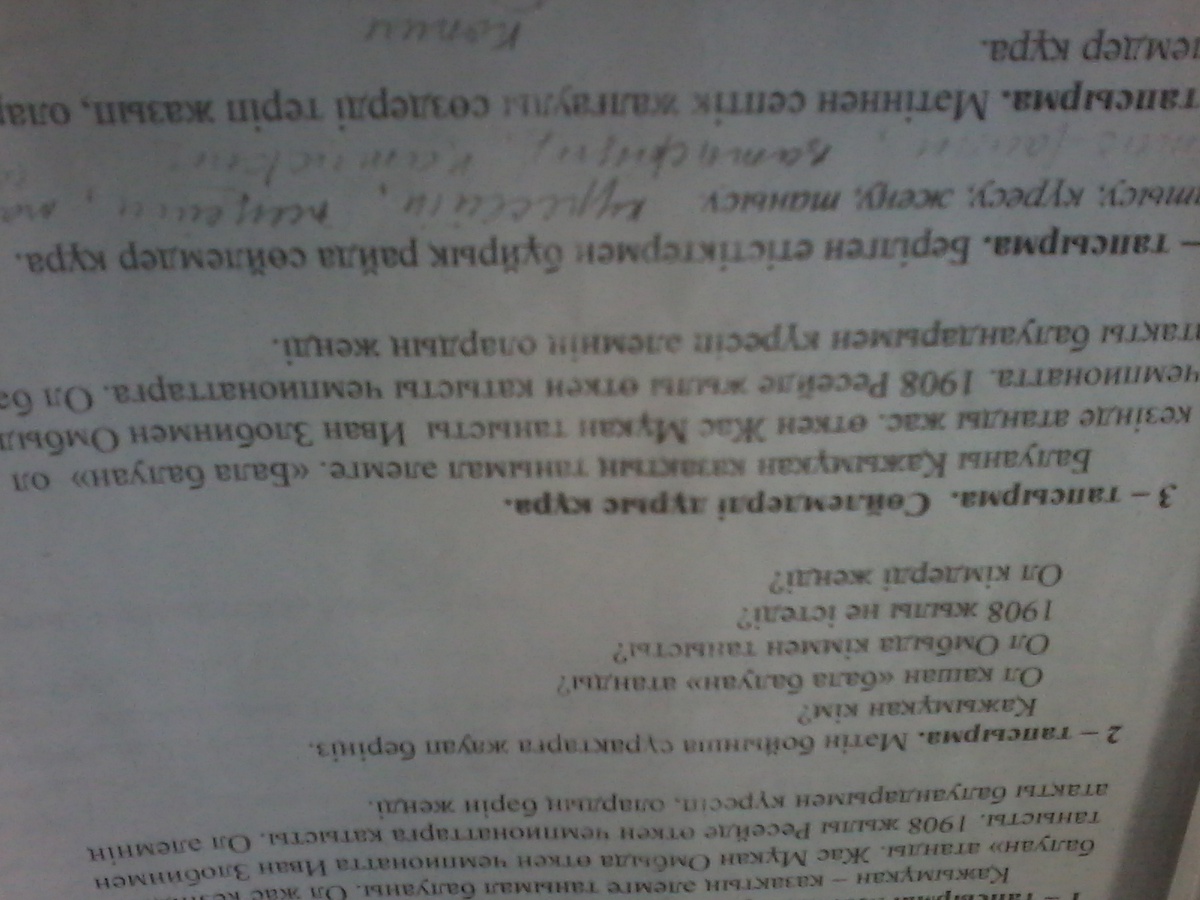 1 – тапсырма.
Қажымұқан – қазақтың әлемге танымал балуаны. Ол жас
балуан» атанды. Жас Мұқан Омбыда өткен чемпионатта Иван Злобинмен
танысты. 1908 жылы Ресейде өткен чемпионаттарға қатысты. Ол әлемнің
атақты балуандарымен күресіп, олардың бәрін жеңді.
2 – тапсырма. Мәтін бойынша сұрақтарға жауап беріңіз.
Қажымұқан кім?
Ол қашан «бала балуан» атанды?
Ол Омбыда кіммен танысты?
1908 жылы не істеді?
Ол кімдерді жеңді?
3 – тапсырма. Сөйлемдерді дұрыс құра.
Балуаны Қажымұқан қазақтың танымал әлемге. «Бала балуан» ол
кезінде атанды жас. өткен Жас Мұқан танысты Иван Злобинмен Омбыд
чемпионатта. 1908 Ресейде жылы өткен қатысты чемпионаттарға. Ол бә
атақты балуандарымен күресіп әлемнің олардың жеңді.
– тапсырма. Берілген етістіктермен бұйрық райда сөйлемдер құра.
тысу, күресу, жеңу, танысу күрессін, жеңсін,
қатыстың,
тапсырма. Мәтіннен септік жалғаулы сөздерді теріп жазып, олар
лемдер құра. Копии